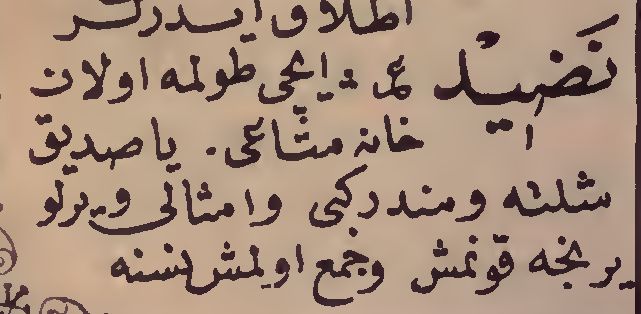 اطلاق ایدرلر
نَضِیْد ع . ایچی طولمه اولان
خانه متاعی . یاصدیق
شلته ومندر کبی وامثالی ویرلو
یرنجه قونمش وجمع اولمش نسنه